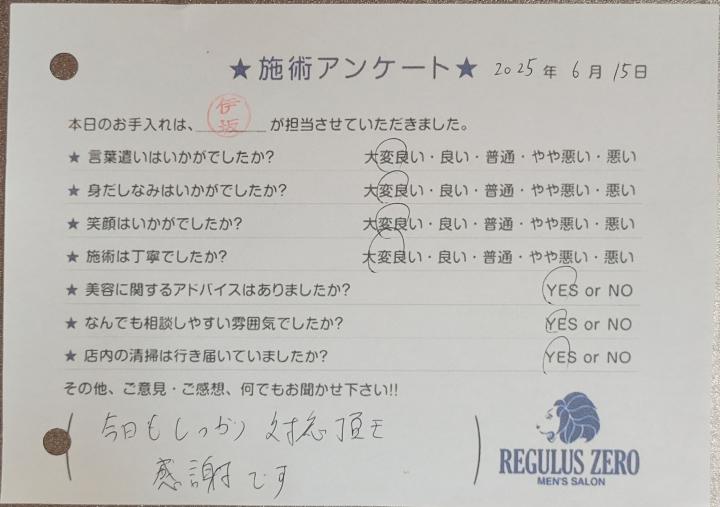 ★施術アンケート★ 2025年 6月 15日
本日のお手入れは、伊坂が担当させていただきました。
★ 言葉遣いはいかがでしたか? 大変良い・良い・普通・やや悪い・悪い
★ 身だしなみはいかがでしたか? 大変良い・良い・普通・やや悪い・悪い
★ 笑顔はいかがでしたか? 大変良い・良い・普通・やや悪い・悪い
★ 施術は丁寧でしたか? 大変良い・良い・普通・やや悪い・悪い
★ 美容に関するアドバイスはありましたか? YES or NO
★ なんでも相談しやすい雰囲気でしたか? YES or NO
★ 店内の清掃は行き届いていましたか? YES or NO
その他、ご意見・ご感想、何でもお聞かせ下さい!!
今日もしっかり対応頂き
感謝です
REGULUS ZERO
MEN'S SALON